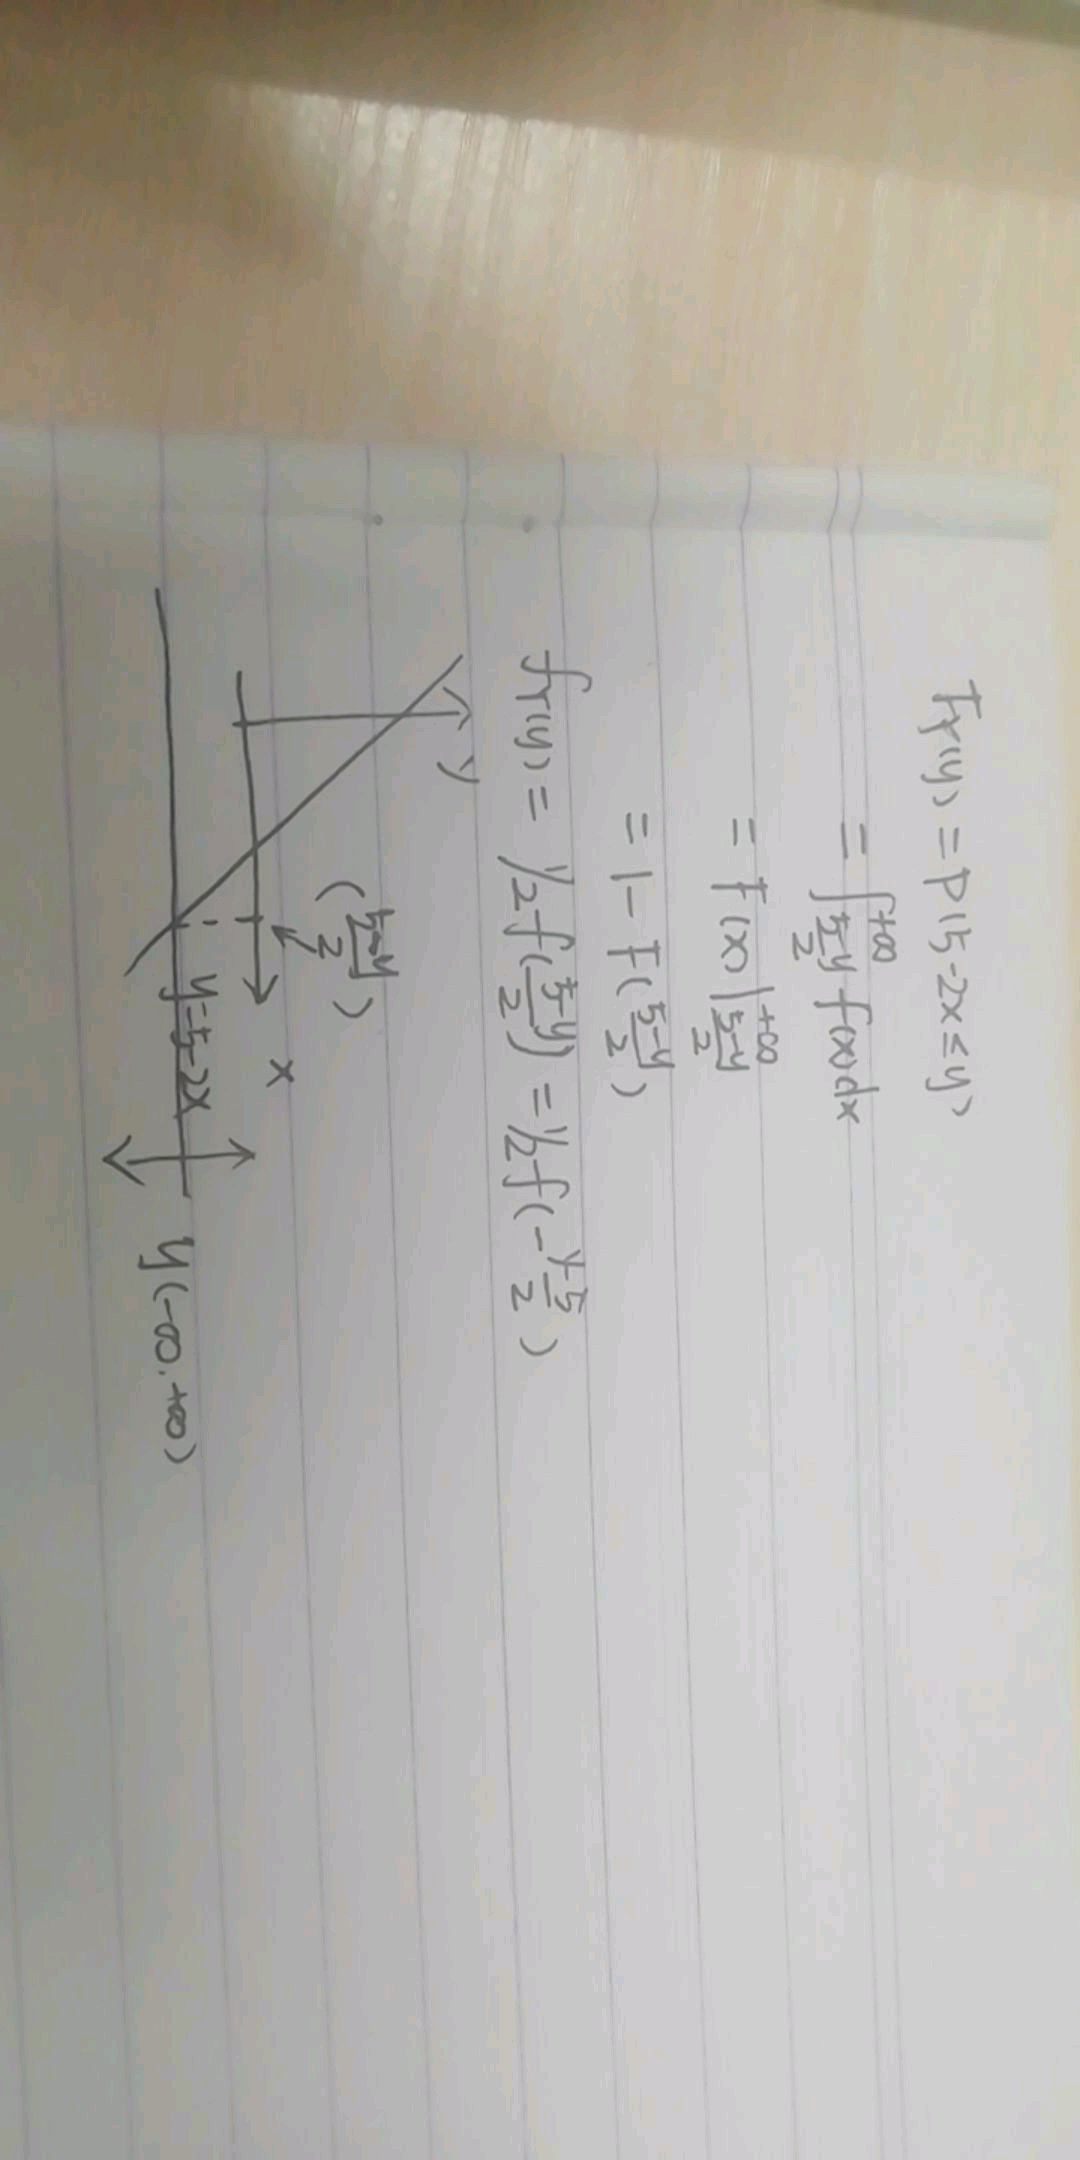 F_Y(y) = P(5-2x≤y)
= ∫_{\frac{5-y}{2}}^{+∞} f(x)dx
= F(x)|_{\frac{5-y}{2}}^{+∞}
= 1-F(\frac{5-y}{2})
f_Y(y) = 1/2 f(\frac{5-y}{2}) = 1/2 f(-\frac{y-5}{2})
y
(\frac{5-y}{2})
x
y=5-2x
y(-∞,+∞)